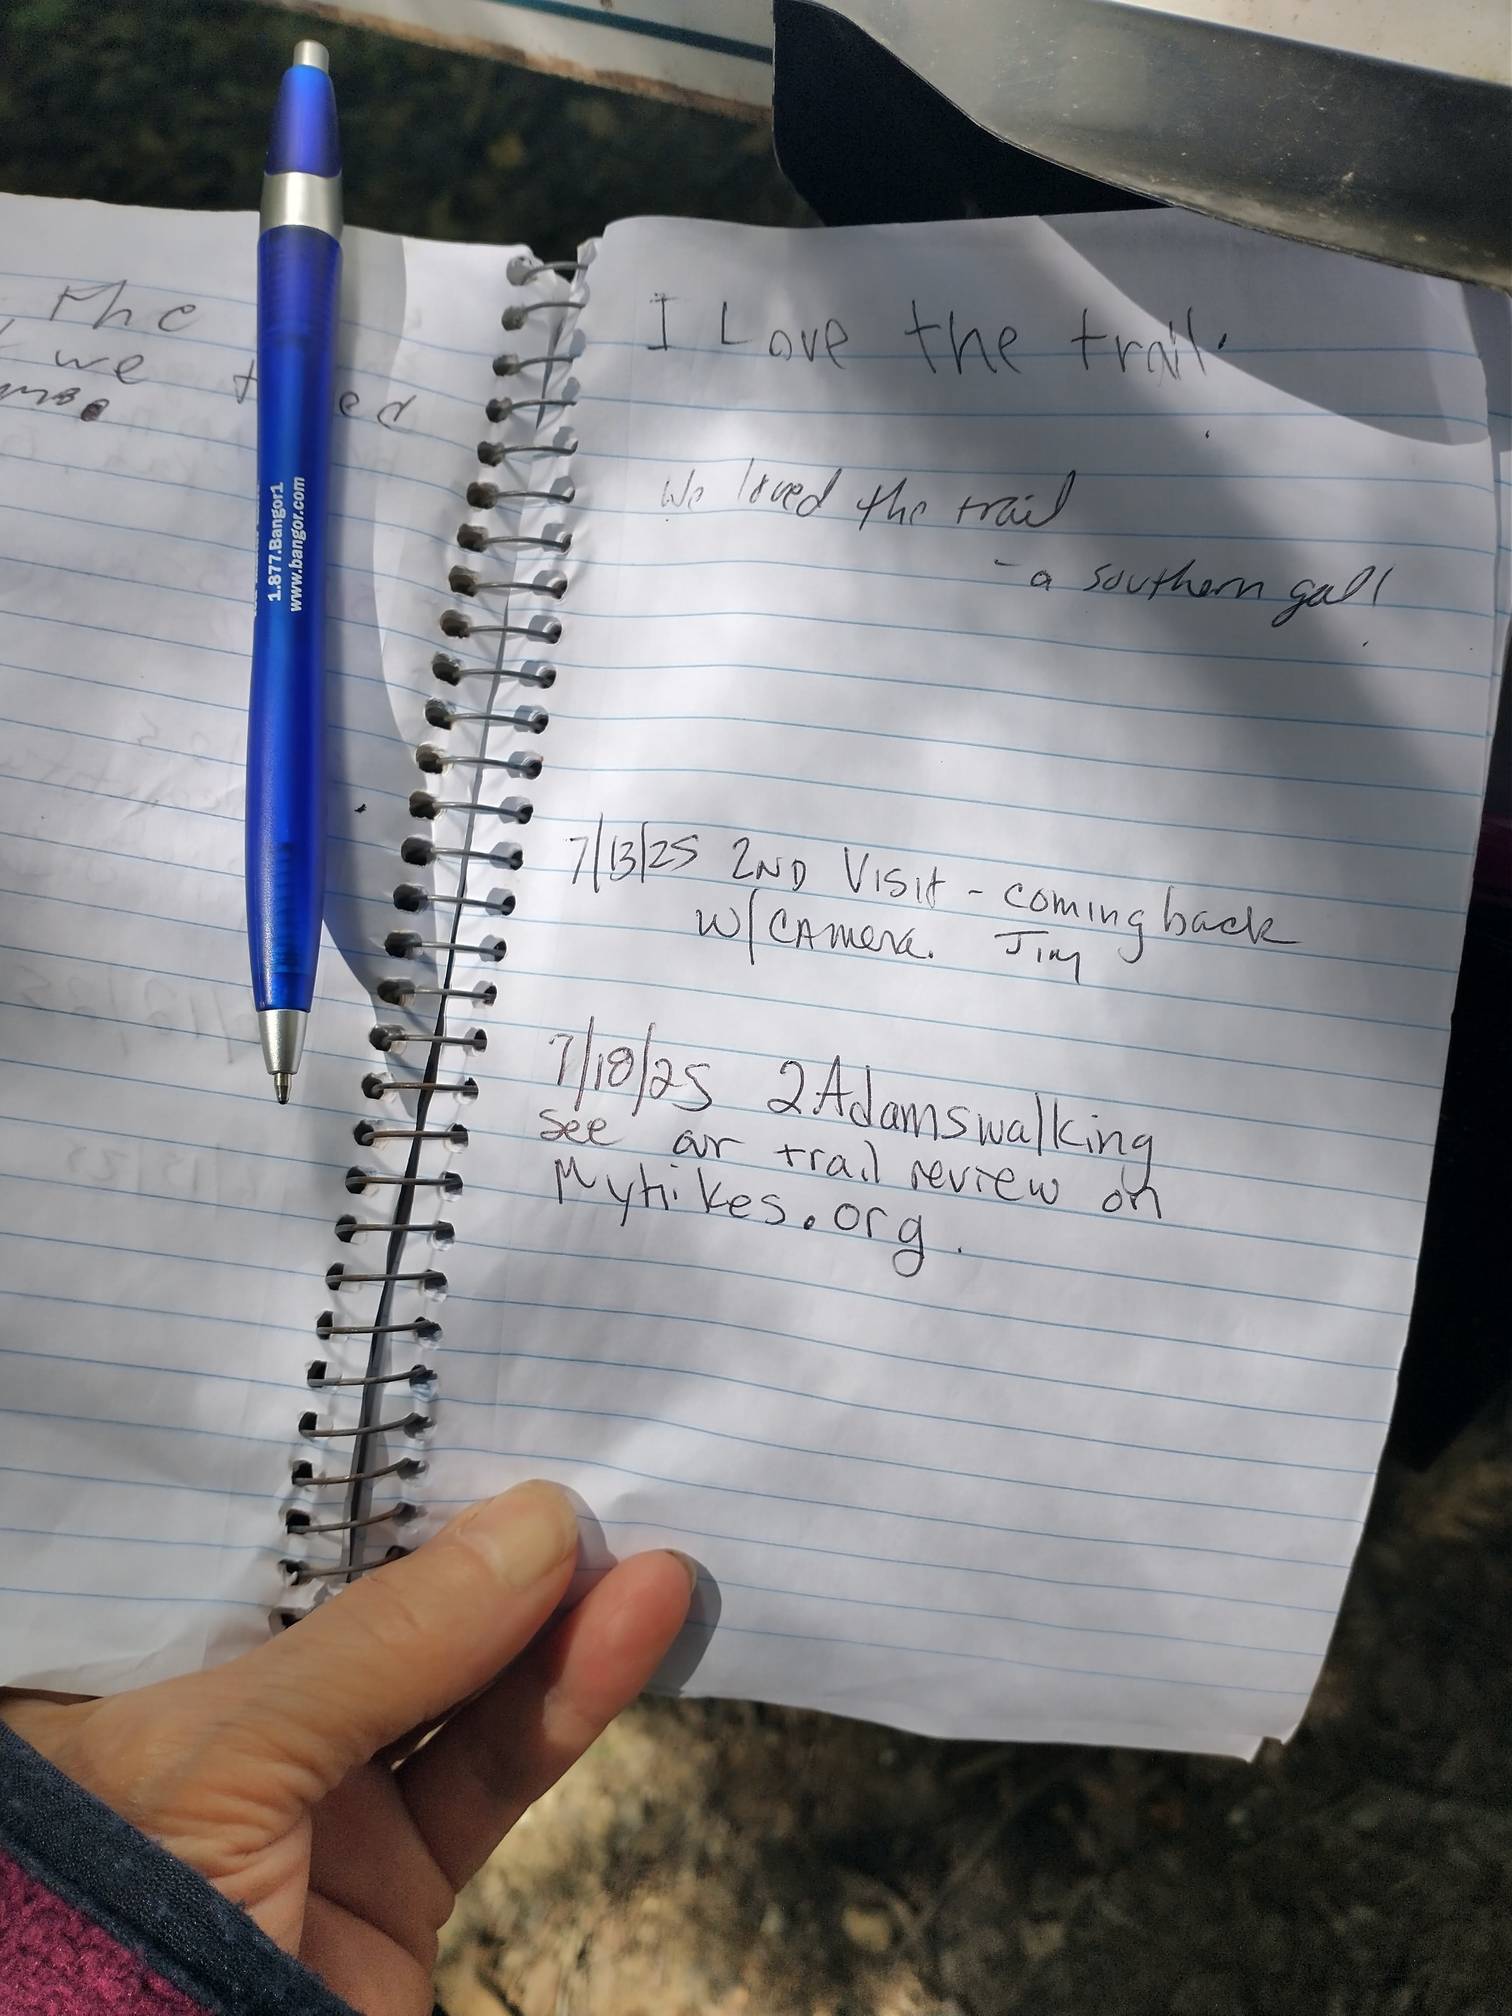 the
we
ed
1.877.Bangor1
www.bangor.com
I Love the trail.
We loved the trail
- a southern gal!
7/13/25 2ND Visit - coming back
w/ CAmera. Jim
7/18/25 2Adamswalking
see our trail review on
Myhikes.org.